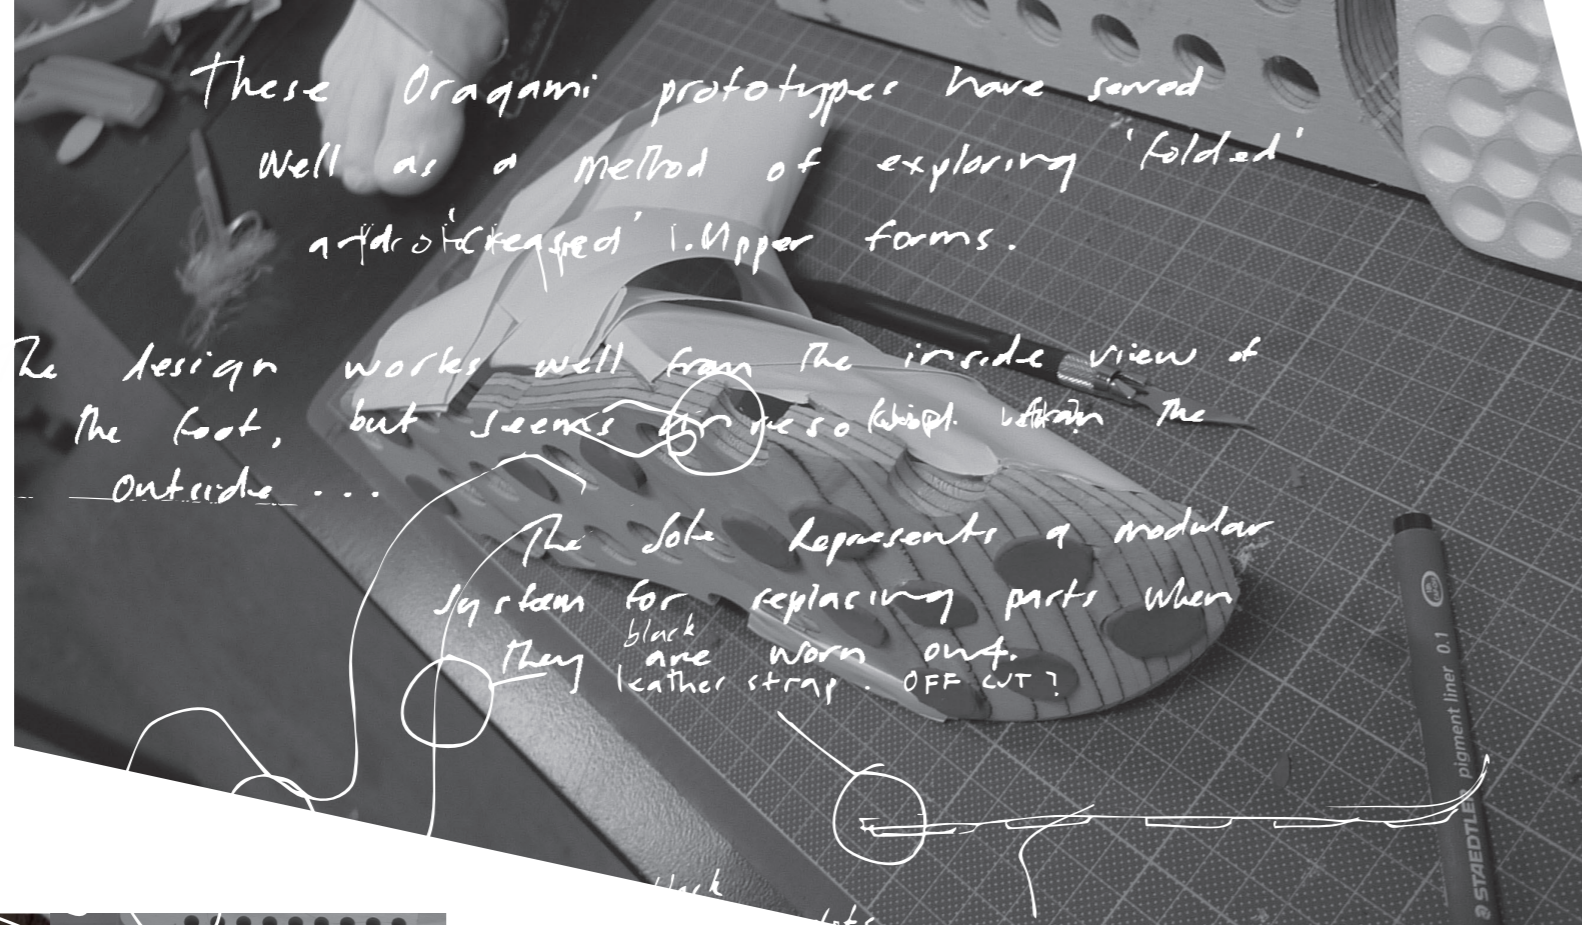 These Oragami prototypes have served
well as a method of exploring 'folded'
'creased' Upper forms.
The design works well from the inside view of
the foot, but seems the
outside ...
The Sole Represents a modular
system for replacing parts when
they are worn out.
black
leather strap. OFF CUT?
STAEDTLER pigment liner 0.1
black